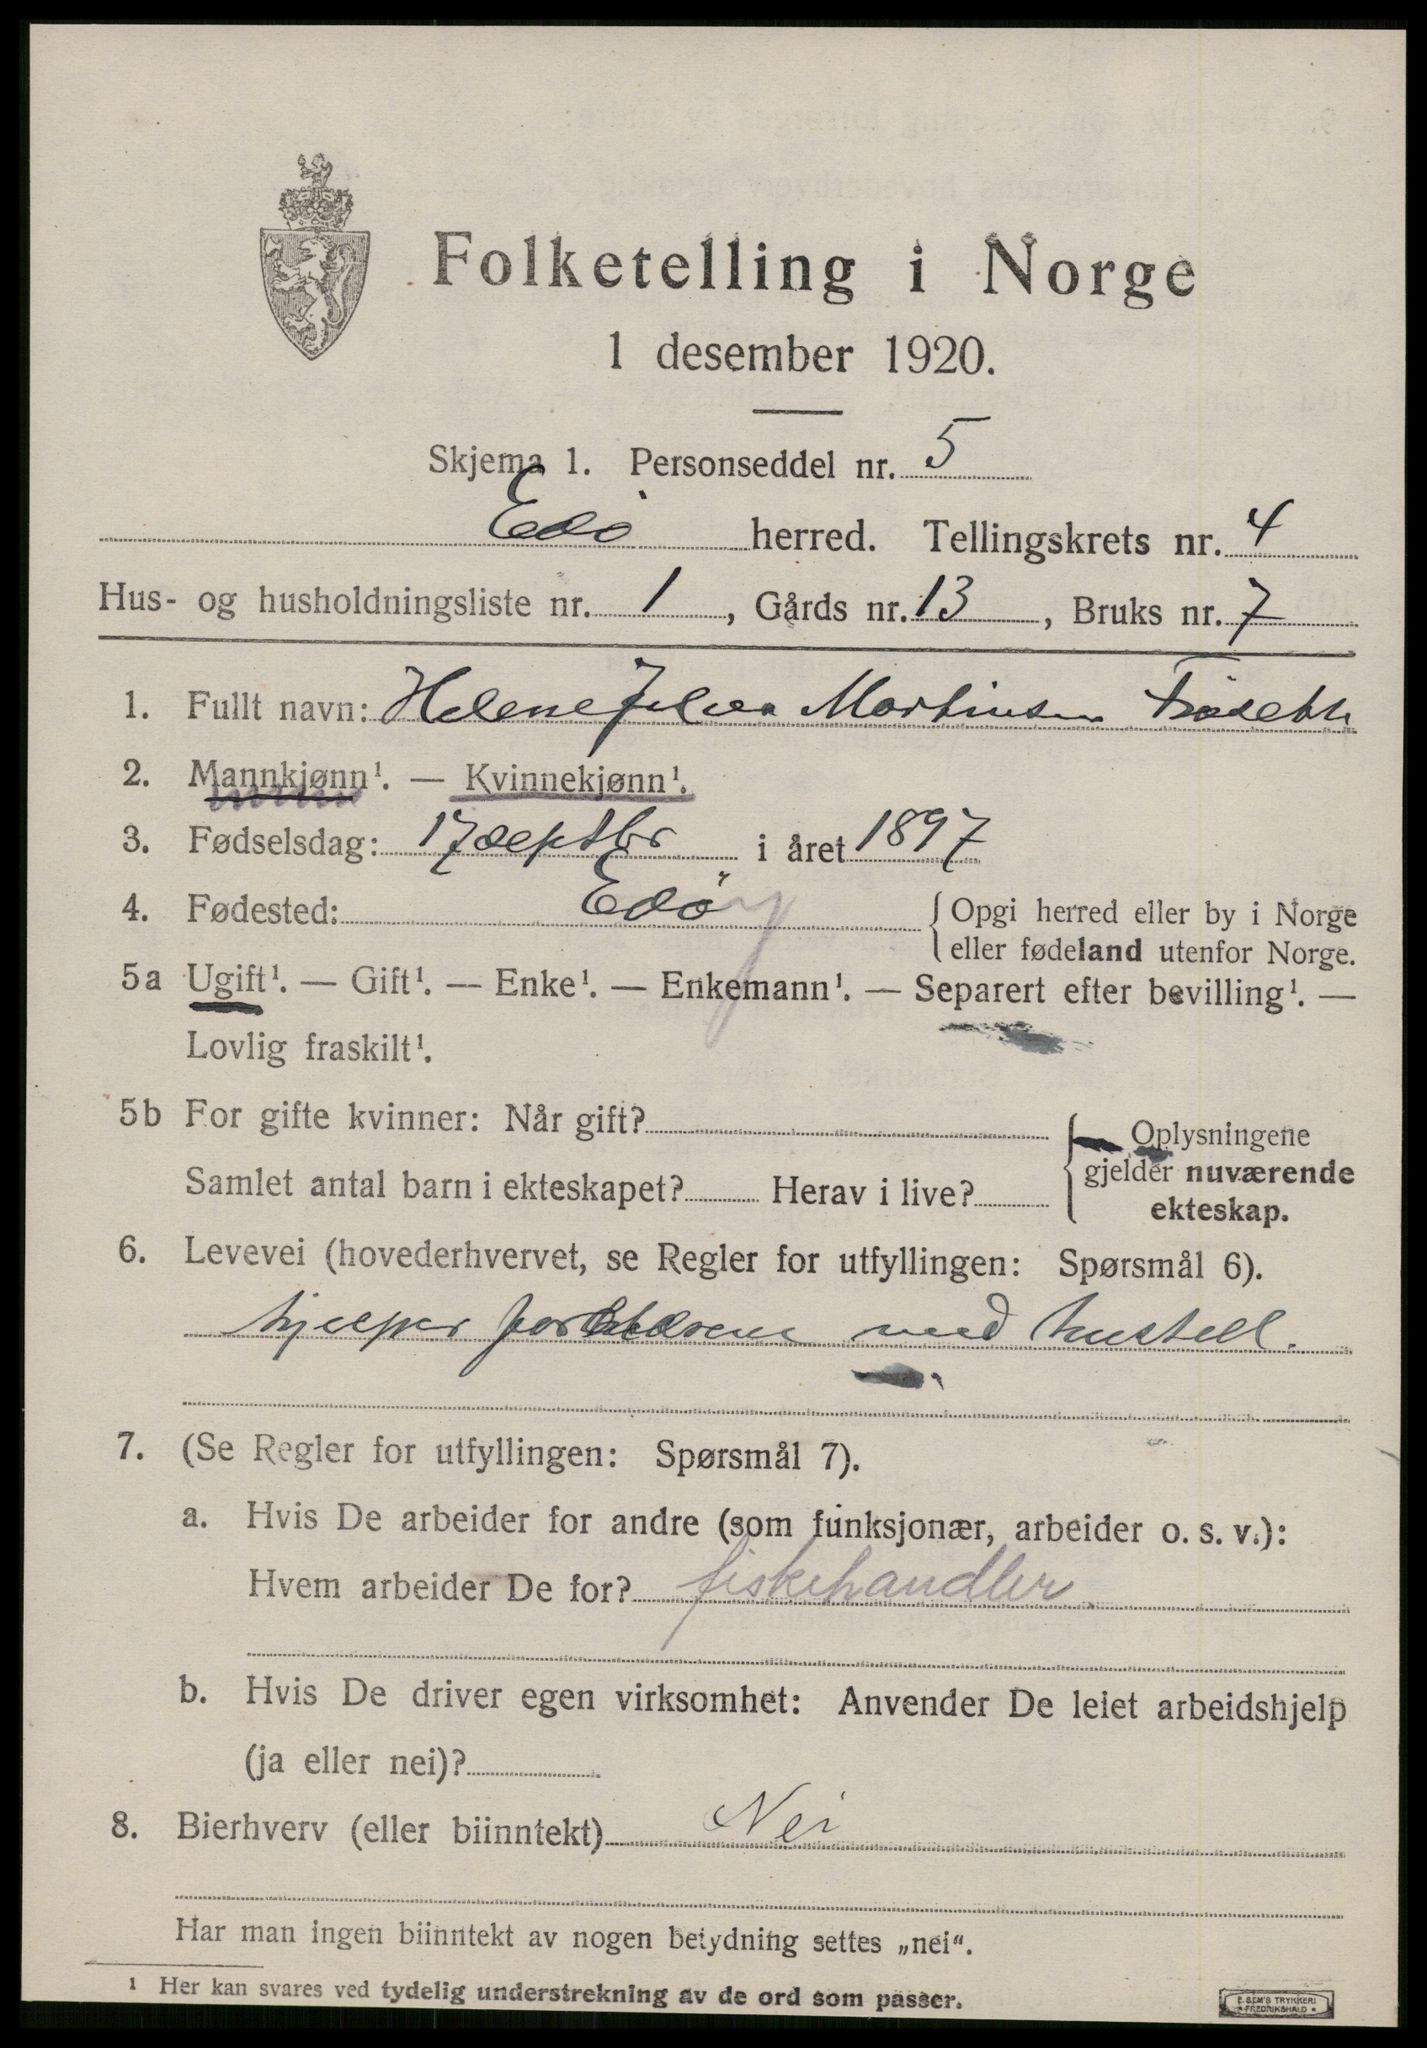 Folketelling i Norge
1 desember 1920.
Skjema 1. Personseddel nr. 5
Edø herred. Tellingskrets nr. 4
Hus- og husholdningsliste nr. 1, Gårds nr. 13, Bruks nr. 7
1. Fullt navn: Helene Martinsen Frøseth
2. Mannkjønn¹. — Kvinnekjønn¹.
3. Fødselsdag: 17 septbr i året 1897
4. Fødested: Edøy {Opgi herred eller by i Norge
eller fødeland utenfor Norge.
5a Ugift¹. — Gift¹. — Enke¹. — Enkemann¹. — Separert efter bevilling¹. —
Lovlig fraskilt¹.
5b For gifte kvinner: Når gift? Oplysningene
Samlet antal barn i ekteskapet? Herav i live? gjelder nuværende
ekteskap.
6. Levevei (hovederhvervet, se Regler for utfyllingen: Spørsmål 6).
hjelper foreldrene med hustell.
7. (Se Regler for utfyllingen: Spørsmål 7).
a. Hvis De arbeider for andre (som funksjonær, arbeider o. s. v.):
Hvem arbeider De for? fiskehandler.
b. Hvis De driver egen virksomhet: Anvender De leiet arbeidshjelp
(ja eller nei)?
8. Bierhverv (eller biinntekt) Nei
Har man ingen biinntekt av nogen betydning settes „nei“.
¹ Her kan svares ved tydelig understrekning av de ord som passer.
E. SEM'S TRYKKERI
* FREDRIKSHALD *